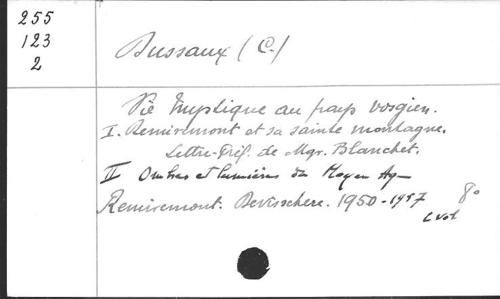 255
123
2
Bussaux (C.)
Vie Mystique au pays vosgien.
I. Remiremont et sa sainte montagne.
Lettre-Préf. de Mgr. Blanchet.
II Ombres et lumières du Moyen Ag
Remiremont. 1950-1957 8º
2 vol